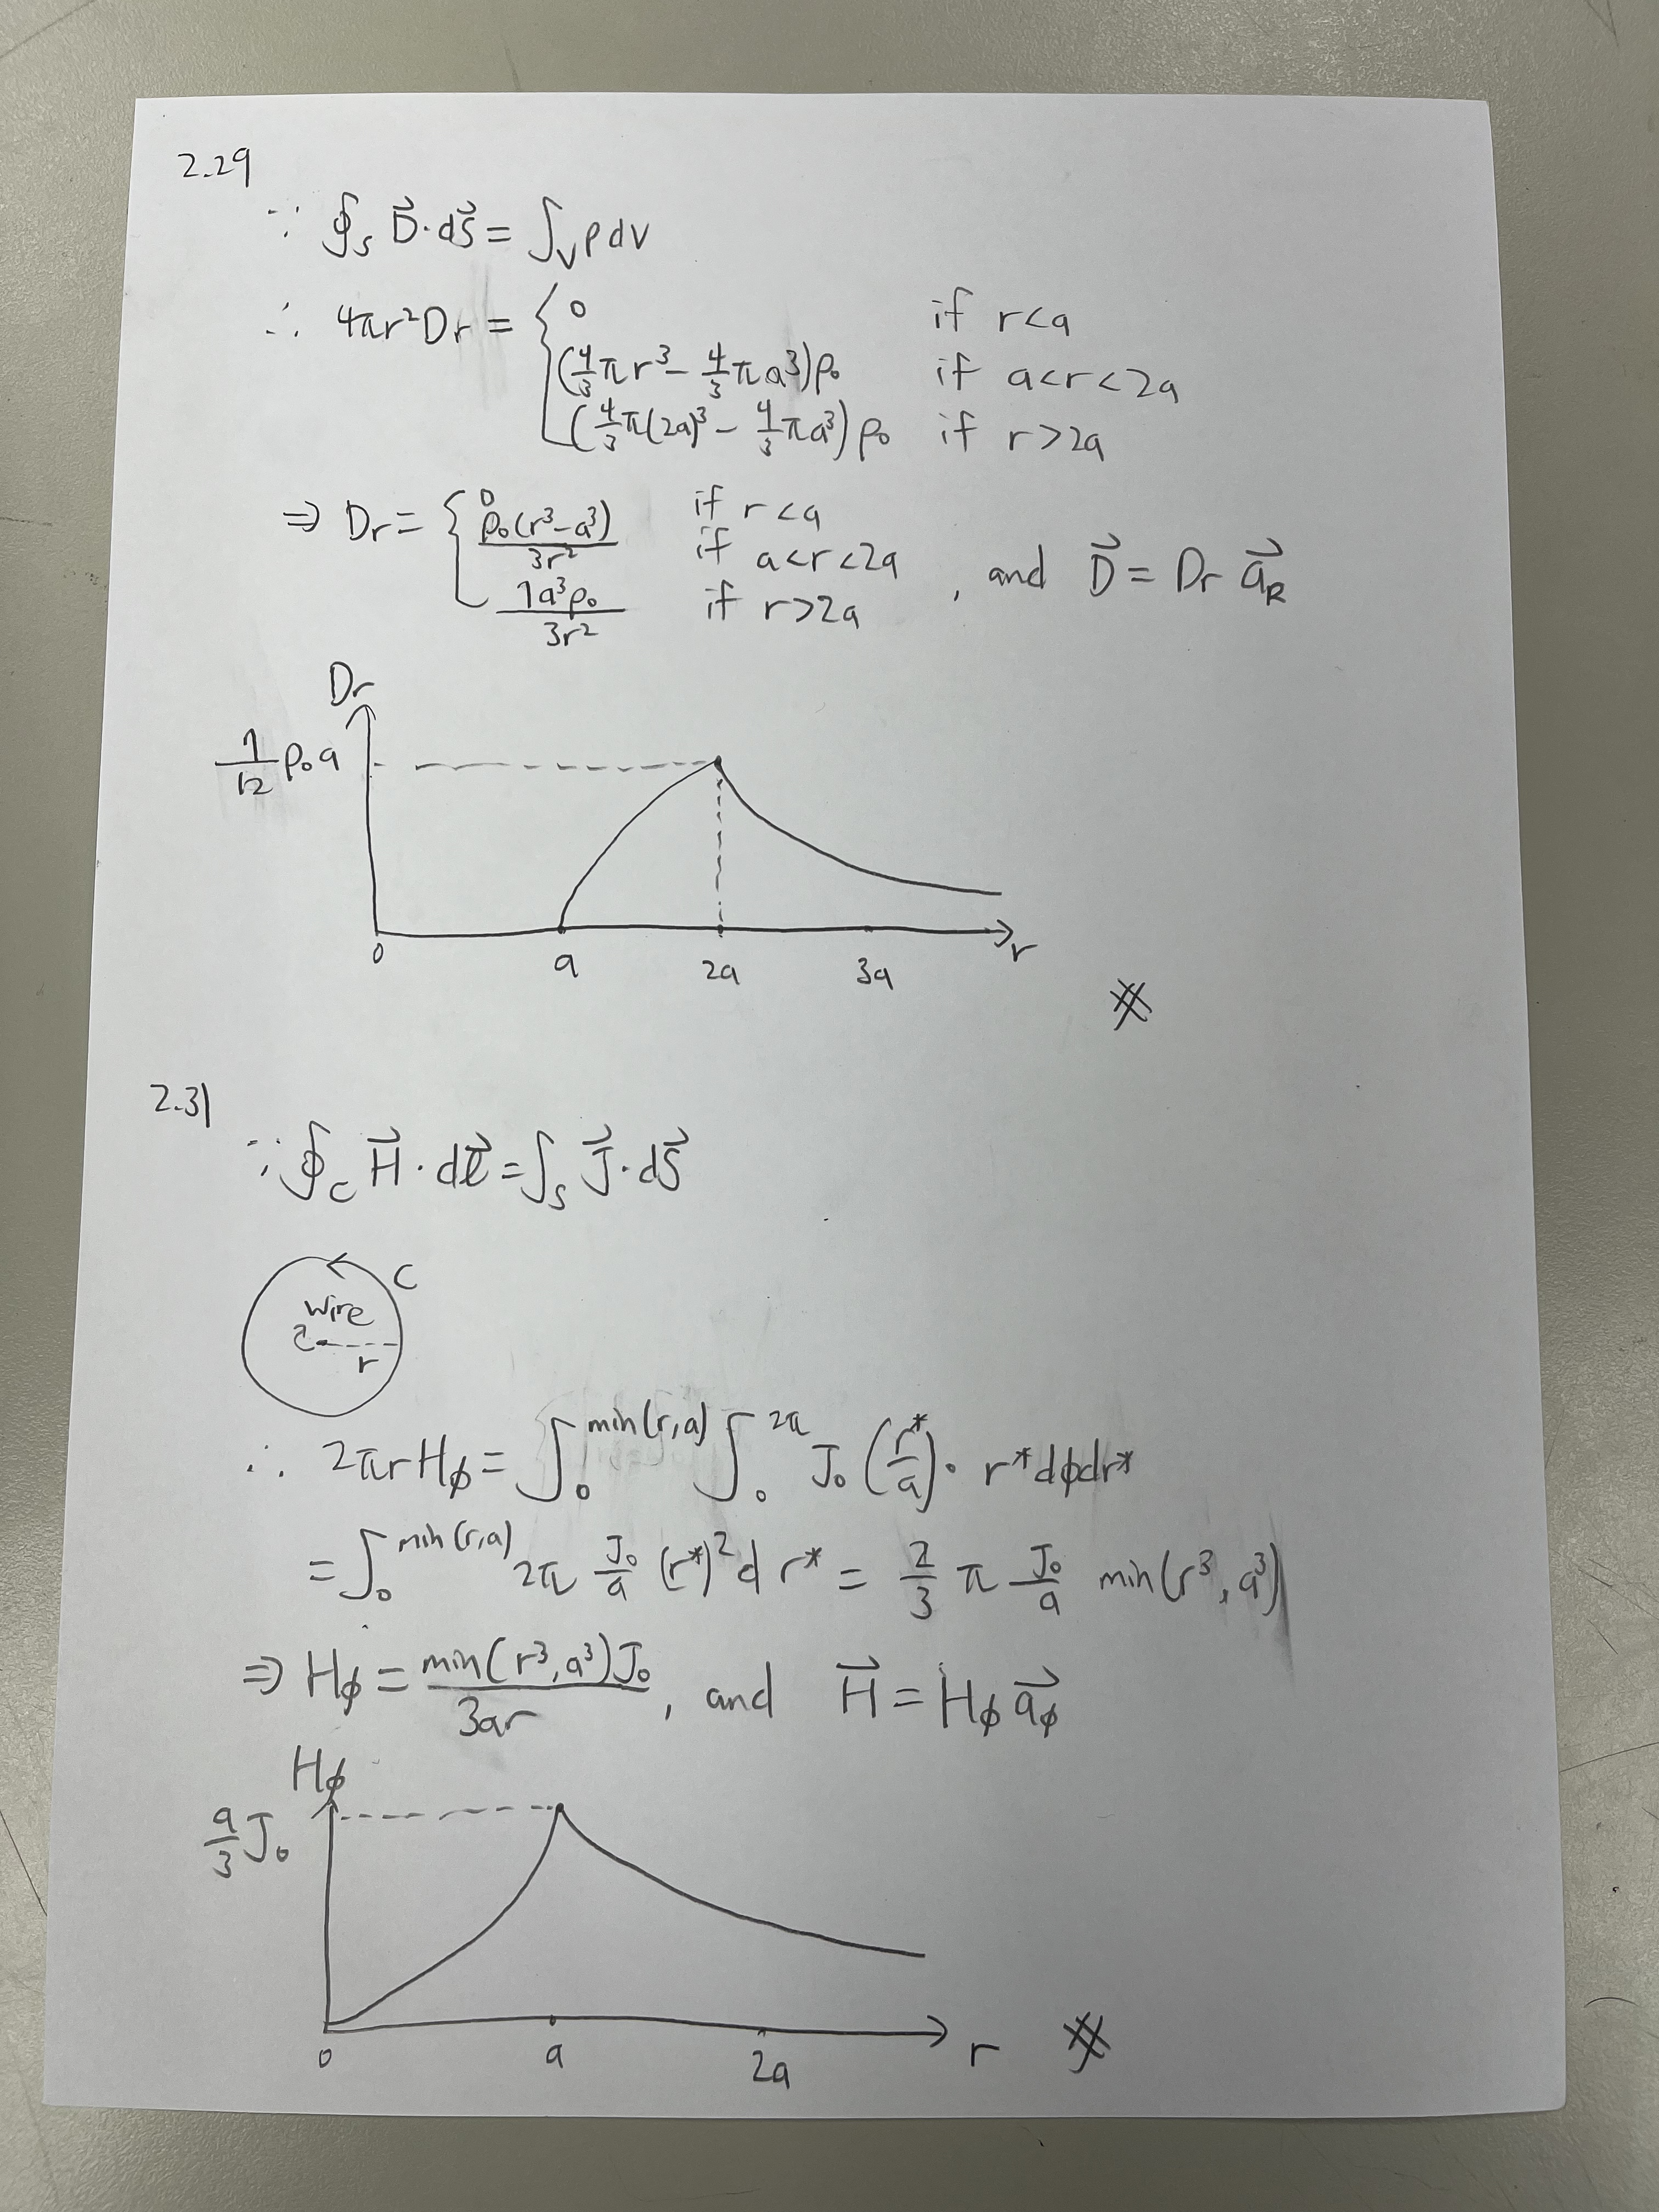 2.29
∵ ∮_S D⃗·dS⃗ = ∫_V ρdV
∴ 4πr²Dr = { 0 if r<a
(4/3 πr³ − 4/3 πa³)ρ₀ if a<r<2a
(4/3 π(2a)³ − 4/3 πa³)ρ₀ if r>2a
⇒ Dr = { 0 if r<a
ρ₀(r³−a³)/3r² if a<r<2a , and D⃗ = Dr a⃗_R
7a³ρ₀/3r² if r>2a
Dr
7/12 ρ₀a
0 a 2a 3a r
⋕
2.31
∵ ∮_C H⃗·dℓ⃗ = ∫_S J⃗·dS⃗
C
wire
r
∴ 2πrHϕ = ∫₀^min(r,a) ∫₀^2π J₀(r*/a)· r*dϕdr*
= ∫₀^min(r,a) 2π J₀/a (r*)² d r* = 2/3 π J₀/a min(r³, a³)
⇒ Hϕ = min(r³, a³)J₀/3ar , and H⃗ = Hϕ a⃗ϕ
Hϕ
a/3 J₀
0 a 2a r ⋕